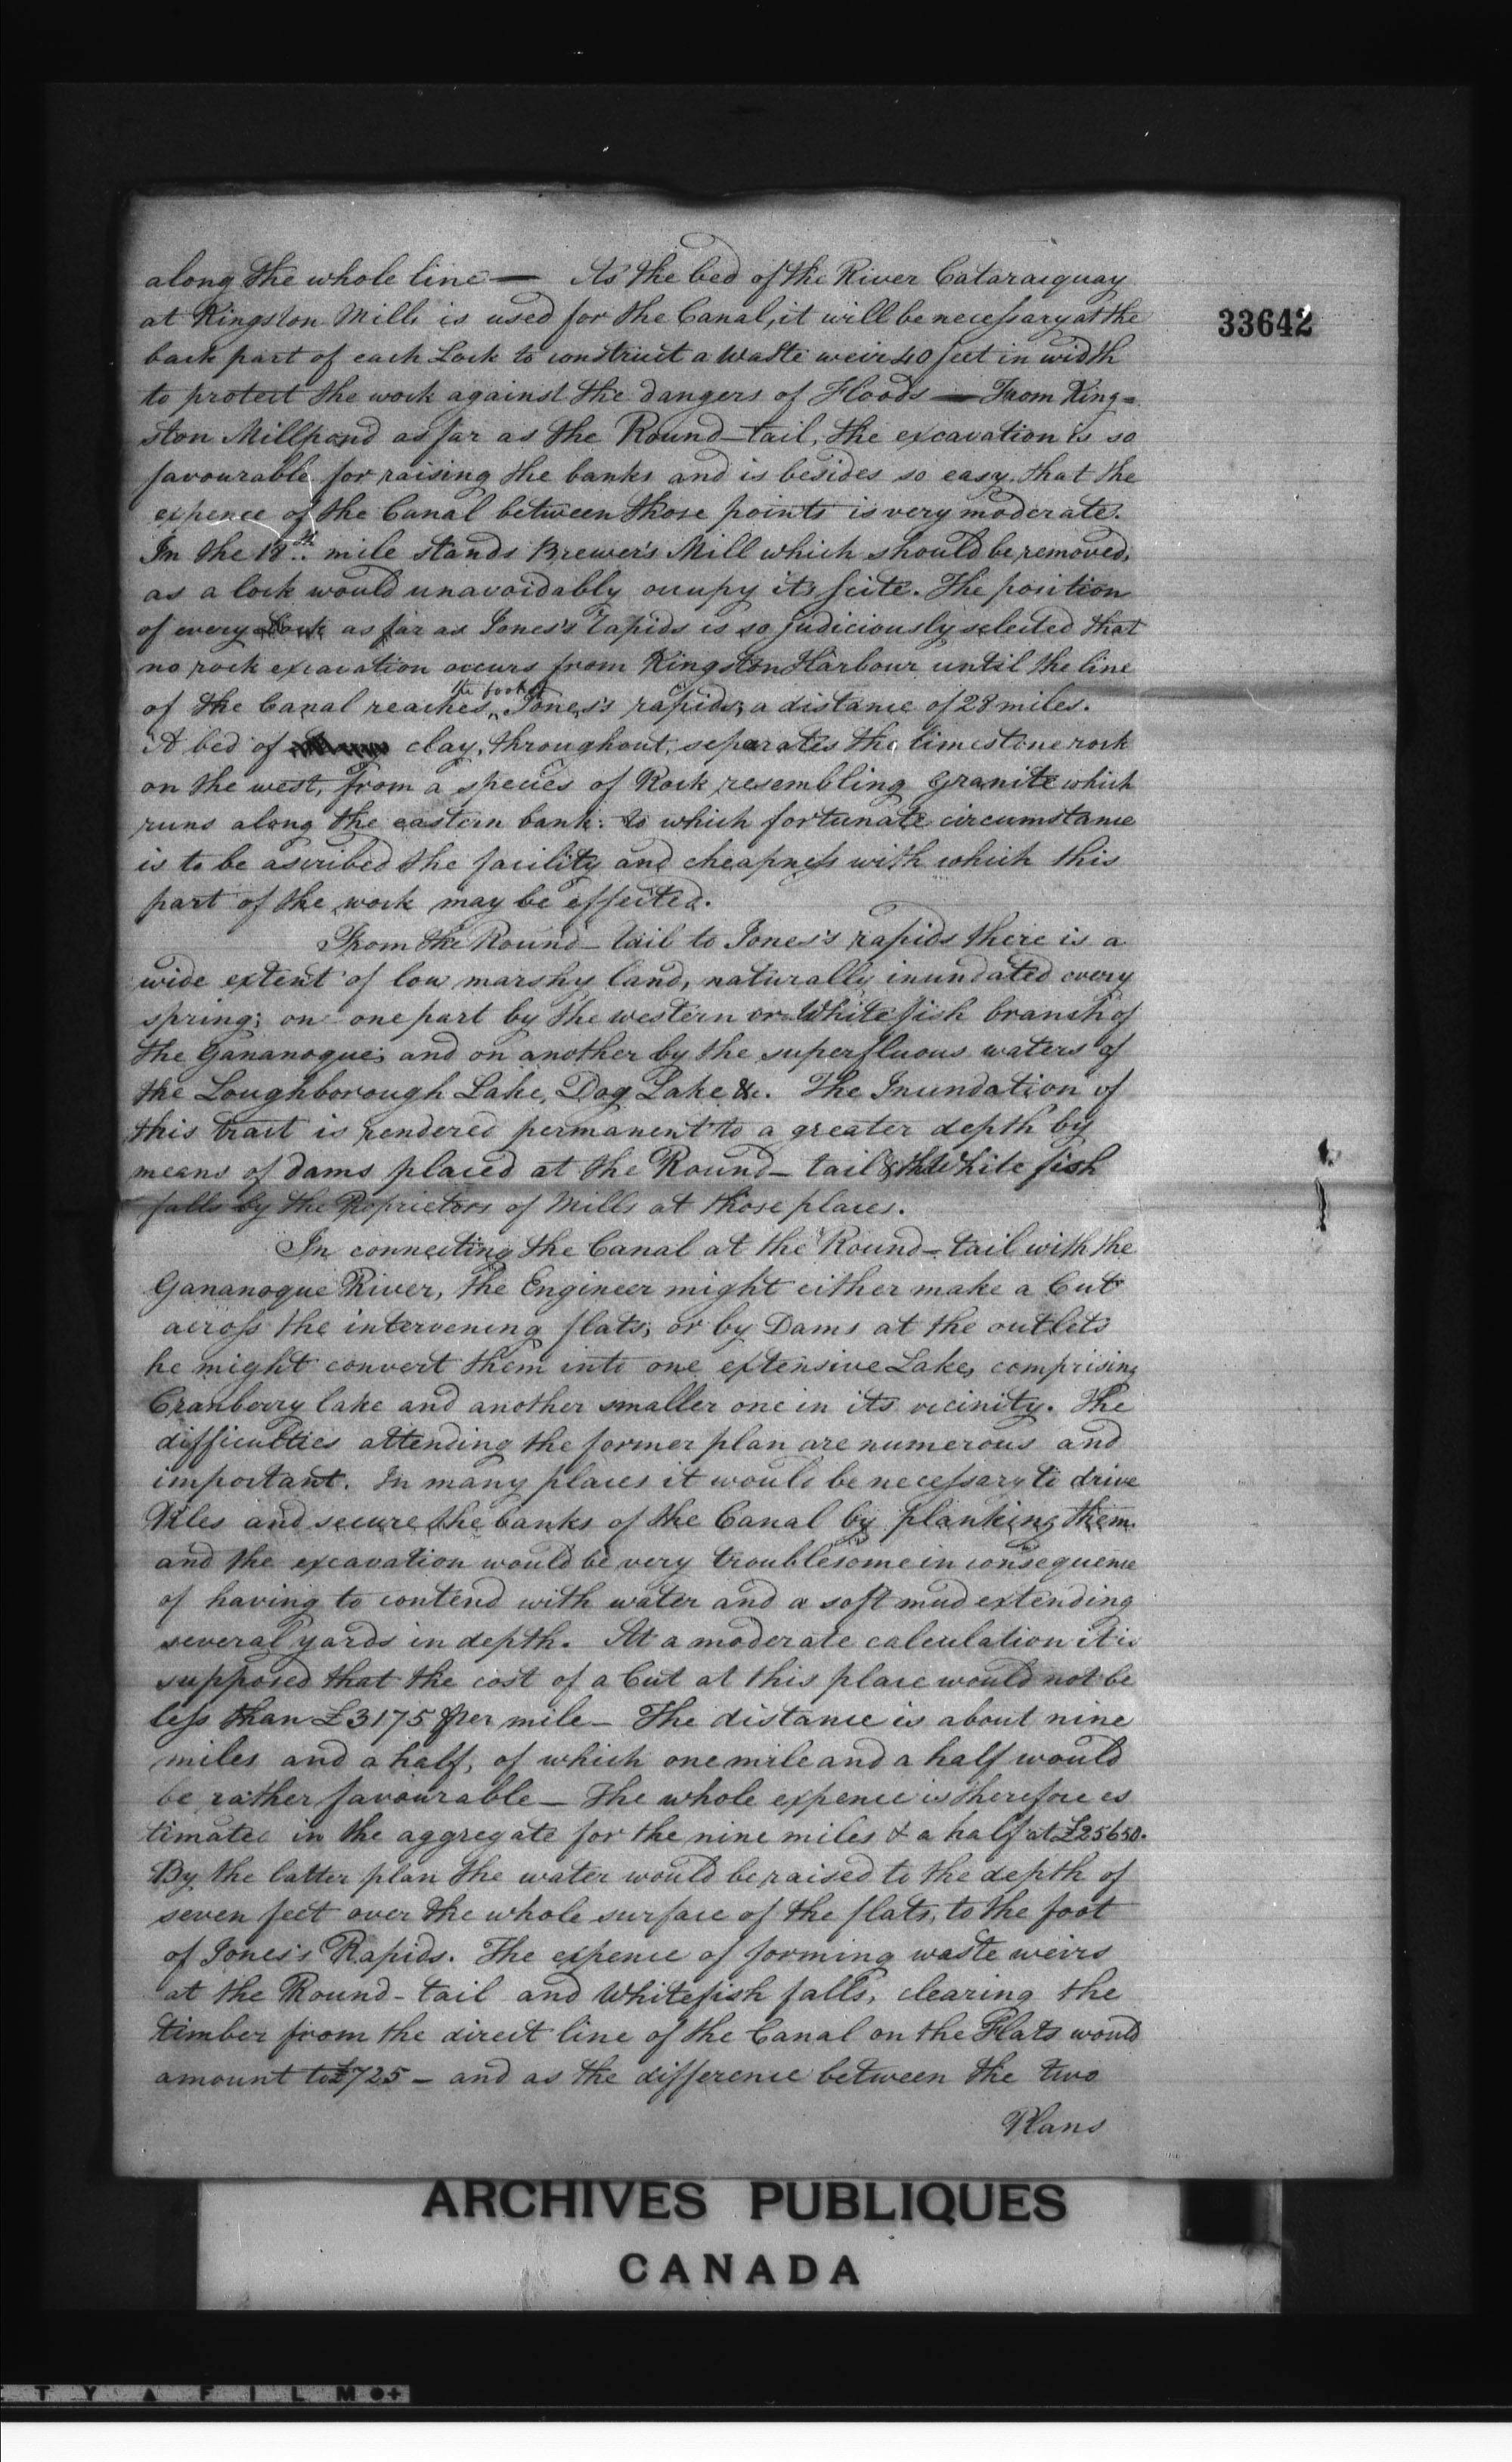 along the whole line — As the bed of the River Cataraquay
33642
at Kingston Mills is used for the Canal, it will be necessary at the
back part of each Lock to construct a Waste weir 40 feet in width
to protect the work against the dangers of Floods — From King=
ston Millpond as far as the Round-tail, the excavation is so
favourable for raising the banks and is besides so easy, that the
expence of the Canal between those points is very moderate.
In the 18th mile stands Brewer's Mill which should be removed,
as a lock would unavoidably occupy its scite. The position
of every Lock as far as Jones's Rapids is so judiciously selected that
no rock excavation occurs from Kingston Harbour until the line
of the Canal reaches the foot of Jones's rapids, a distance of 28 miles.
A bed of clay, throughout, separates the limestone rock
on the west, from a species of Rock resembling Granite which
runs along the eastern bank: to which fortunate circumstance
is to be ascribed the facility and cheapness with which this
part of the work may be effected.
From the Round-tail to Jones's rapids there is a
wide extent of low marshy land, naturally inundated every
spring; on one part by the western or White fish branch of
the Gananoque; and on another by the superfluous waters of
the Loughborough Lake, Dog Lake &c. The Inundation of
this tract is rendered permanent to a greater depth by
means of dams placed at the Round-tail & the White fish
falls by the Proprietors of Mills at those places.
In connecting the Canal at the Round-tail with the
Gananoque River, the Engineer might either make a Cut
across the intervening flats; or by Dams at the outlets
he might convert them into one extensive Lake, comprising
Cranberry lake and another smaller one in its vicinity. The
difficulties attending the former plan are numerous and
important. In many places it would be necessary to drive
Piles and secure the banks of the Canal by planking them.
and the excavation would be very troublesome in consequence
of having to contend with water and a soft mud extending
several yards in depth. At a moderate calculation it is
supposed that the cost of a Cut at this place would not be
less than £3175 per mile — The distance is about nine
miles and a half, of which one mile and a half would
be rather favourable — The whole expence is therefore es
timated in the aggregate for the nine miles & a half at £25650.
By the latter plan the water would be raised to the depth of
seven feet over the whole surface of the flats, to the foot
of Jones's Rapids. The expence of forming waste weirs
at the Round-tail and Whitefish falls, clearing the
timber from the direct line of the Canal on the Flats would
amount to £725 — and as the difference between the two
Plans
ARCHIVES PUBLIQUES
CANADA
T Y ▲ F I L M